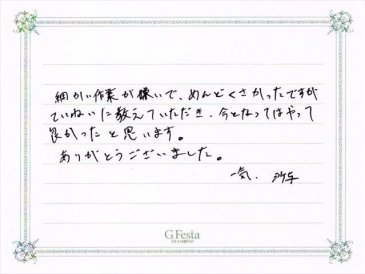 細かい作業が嫌いで、めんどくさかったですが
ていねいに教えていただき、今となってはやって
良かったと思います。
ありがとうございました。
G.Festa